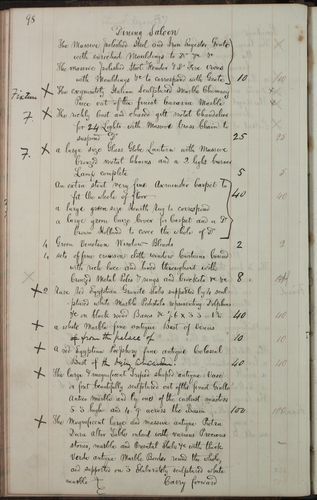 98
Dining Saloon
The Massive polished Steel and Iron Register Grate
with enriched Mouldings to Do
The massive polished Steel Fender & Fire irons
with Mouldings &c to correspond with Grate 10
Fixture X The exquisitely Italian Sculptured Marble Chimney
Piece out of the finest Carrara Marble
F. X The richly cut and chased gilt metal Chandelier
for 24 Lights with Massive Brass Chain to
suspend Do 25
F. X a large size Glass Globe Lantern with Massive
Bronzed metal chains and a 3 light burner
Lamp complete 5 5
An extra stout very fine Axminster Carpet to
fit the whole of floor
a large green size Hearth Rug to correspond 40 40
a large green baize Cover for Carpet and a Do
Brown Holland to cover the whole of Do
4 Green Venetian Window Blinds 2 2
4 sets of fine crimson cloth window Curtains lined
with rich lace and lined throughout with
Bronzed Metal Poles & rings and brackets 8
X Rare Red Egyptian Granite Slabs supported by 2 sculp-
tured white Marble Pedestals representing Dolphins
on black wood Bases 40 40
X a white Marble fine antique Bust of Venus
from the palace of 10 10
X a red Egyptian Porphyry fine antique Colossal
Bust of 40 50
X The large & magnificent Tripod shaped antique Vase
in font beautifully sculptured out of the finest Giallo
Antico marble and by one of the earliest masters
5.5 high and 4.9 across the Basin 100 100
X The Magnificent large and massive antique Pietra
Dura altar Table inlaid with various Precious
stones, marble and Oriental Slabs with thick
Verde antique Marble Border round the whole,
and supported on 3 Elaborately sculptured white
marble Carry forward